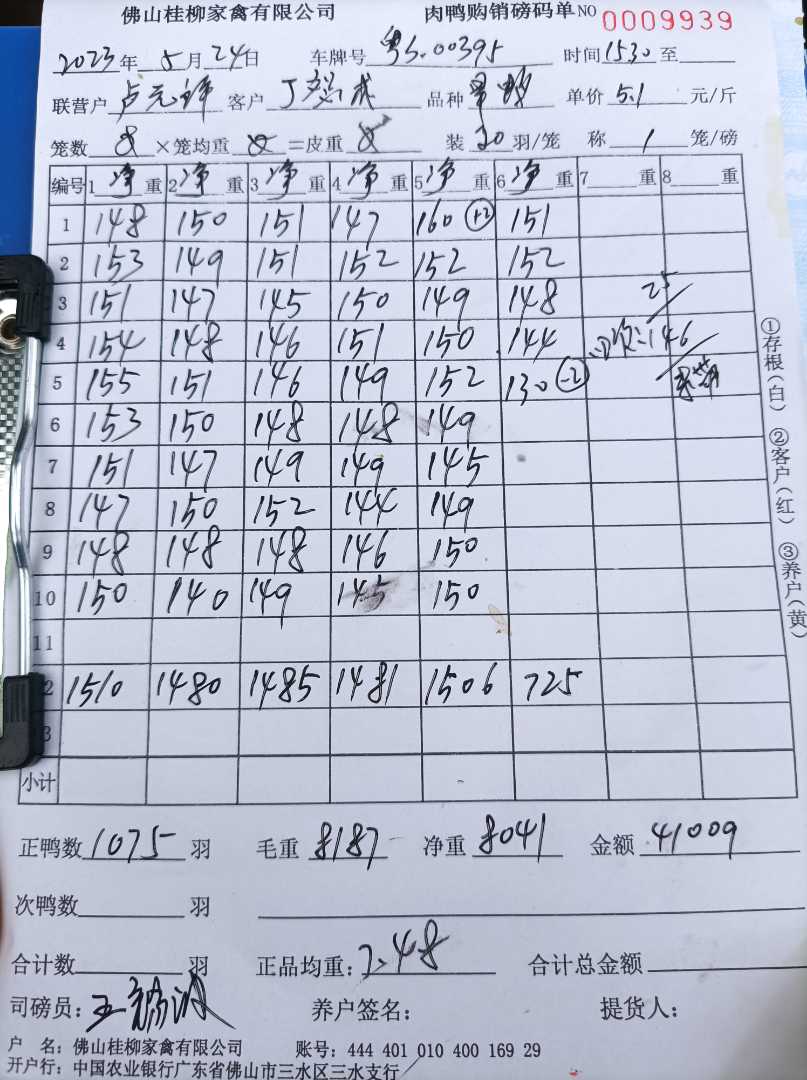 佛山桂柳家禽有限公司 肉鸭购销磅码单NO 0009939
2023年5月24日 车牌号 粤S.00395 时间1530至
联营户 卢元锋 客户 丁 品种 单价 5.1 元/斤
笼数 ×笼均重 =皮重 装 20 羽/笼 称 1 笼/磅
编号 1 净 重 2 净 重 3 净 重 4 净 重 5 净 重 6 净 重 7 重 8 重
1 148 150 151 147 160 (+2) 151
2 153 149 151 152 152 152
3 151 147 145 150 149 148 25
4 154 148 146 151 150 144 次:146
5 155 151 146 149 152 130 (-2)
6 153 150 148 148 149
7 151 147 149 149 145
8 147 150 152 144 149
9 148 148 148 146 150
10 150 140 149 145 150
11
2 1510 1480 1485 1481 1506 725
3
小计
①存根(白) ②客户(红) ③养户(黄)
正鸭数 1075 羽 毛重 8187 净重 8041 金额 41009
次鸭数 羽
合计数 羽 正品均重: 7.48 合计总金额
司磅员: 王 养户签名: 提货人:
户 名: 佛山桂柳家禽有限公司 账号: 444 401 010 400 169 29
开户行: 中国农业银行广东省佛山市三水区三水支行